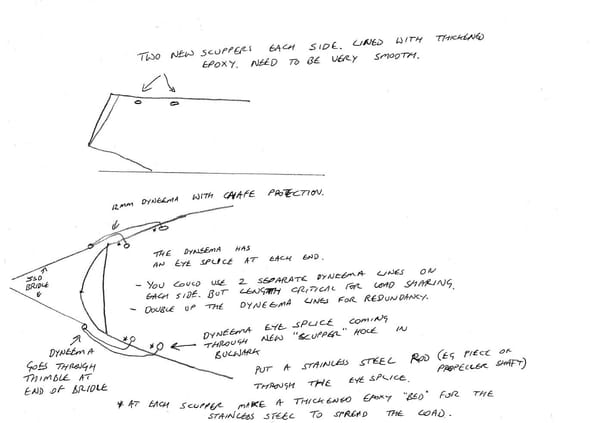 TWO NEW SCUPPERS EACH SIDE. LINED WITH THICKENED
EPOXY. NEED TO BE VERY SMOOTH.
12MM DYNEEMA WITH CHAFE PROTECTION.
THE DYNEEMA HAS
AN EYE SPLICE AT EACH END.
- YOU COULD USE 2 SEPARATE DYNEEMA LINES ON
EACH SIDE. BUT LENGTH CRITICAL FOR LOAD SHARING.
- DOUBLE UP THE DYNEEMA LINES FOR REDUNDANCY.
BRIDLE
DYNEEMA EYE SPLICE COMING
THROUGH NEW "SCUPPER" HOLE IN
BULWARK
DYNEEMA
GOES THROUGH
THIMBLE AT
END OF BRIDLE
PUT A STAINLESS STEEL ROD (EG PIECE OF
PROPELLER SHAFT)
THROUGH THE EYE SPLICE.
* AT EACH SCUPPER MAKE A THICKENED EPOXY "BED" FOR THE
STAINLESS STEEL TO SPREAD THE LOAD.